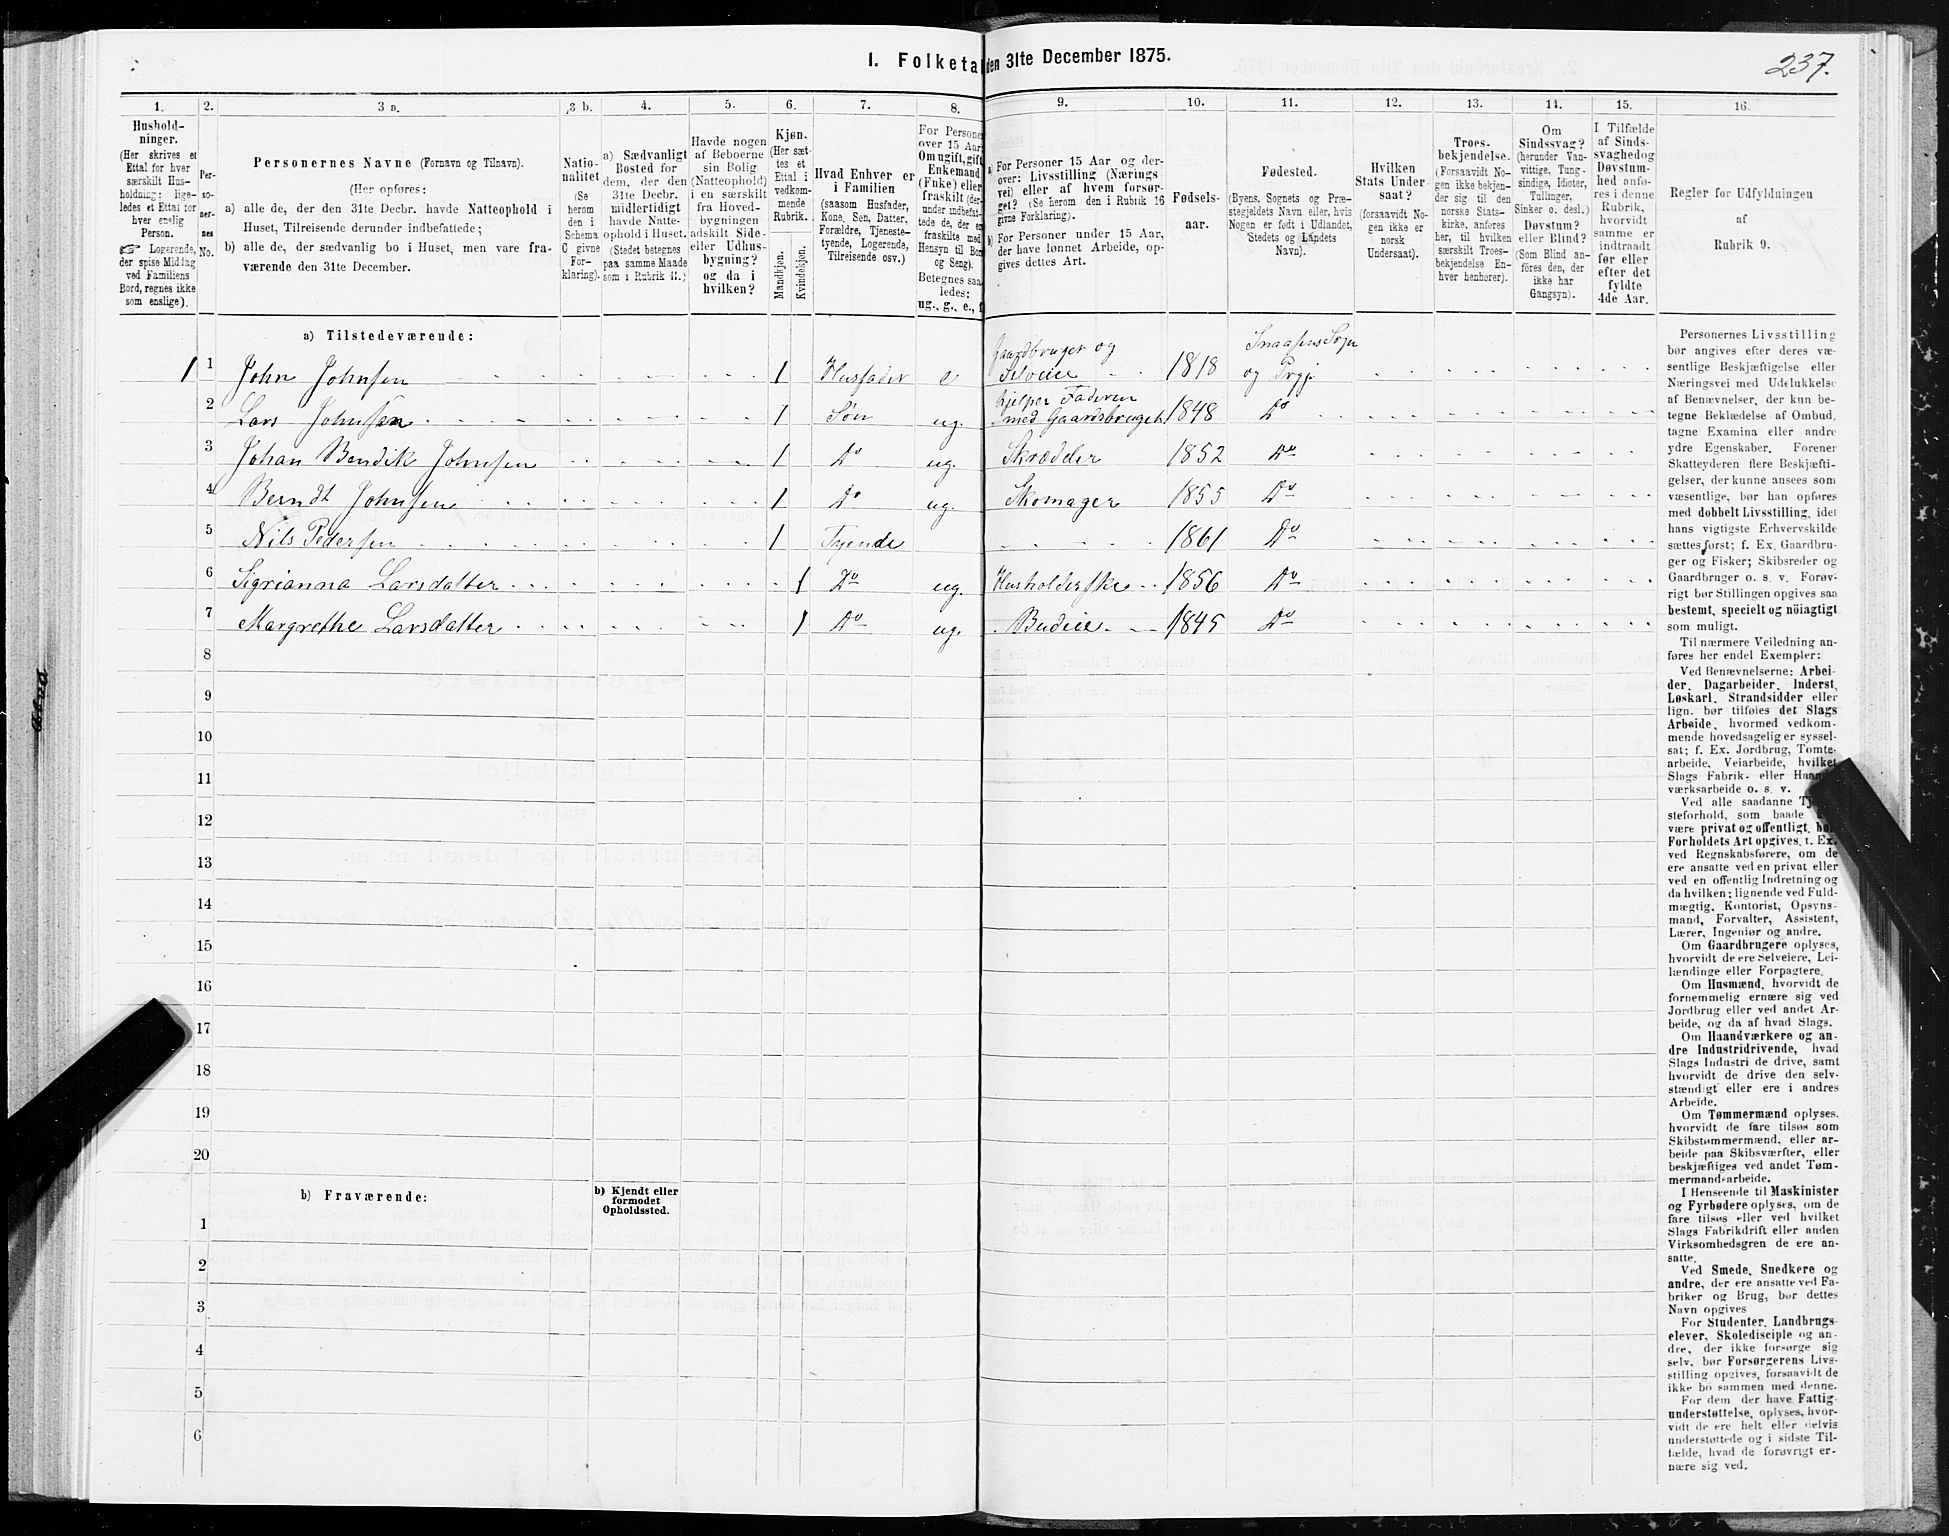 1. Folketal den 31te December 1875.
237.
1. 2. 3 a. 3 b. 4. 5. 6. 7. 8. 9. 10. 11. 12. 13. 14. 15. 16.
Hushold-
ninger.
(Her skrives et
Ettal for hver
særskilt Hus-
holdning; lige-
ledes et Ettal for
hver enslig
Person.
☞ Logerende,
der spise Middag
ved Familiens
Bord, regnes ikke
som enslige).
Per-
so-
ner-
nes
No.
Personernes Navne (Fornavn og Tilnavn).
(Her opføres:
a) alle de, der den 31te Decbr. havde Natteophold i
Huset, Tilreisende derunder indbefattede;
b) alle de, der sædvanlig bo i Huset, men vare fra-
værende den 31te December.
Natio-
nalitet
(Se
herom
den i
Schema
C givne
For-
klaring).
a) Sædvanligt
Bosted for
dem, der den
31te Decbr.
midlertidigt
havde Natte-
ophold i Huset.
(Stedet betegnes
paa samme Maade
som i Rubrik 11.)
Havde nogen
af Beboerne
sin Bolig
(Natteophold)
i en særskilt
fra Hoved-
bygningen
adskilt Side-
eller Udhus-
bygning?
og da i
hvilken?
Kjøn.
(Her sæt-
tes et
Ettal i
vedkom-
mende
Rubrik.
Mandkjøn.
Kvindekjøn.
Hvad Enhver er
i Familien
(saasom Husfader,
Kone, Søn, Datter,
Forældre, Tjeneste-
tyende, Logerende,
Tilreisende osv.)
For Persone
over 15 Aar
Om ugift, gift
Enkemand
(Enke) eller
fraskilt (der-
under indbefat-
tede de, der er
fraskilte med
Hensyn til Bor
og Seng).
Betegnes saa
ledes:
ug., g., e., f
a) For Personer 15 Aar og der-
over: Livsstilling (Nærings
vei) eller af hvem forsør-
get? (Se herom den i Rubrik 16
givne Forklaring).
b) For Personer under 15 Aar,
der have lønnet Arbeide, op-
gives dettes Art.
Fødsels-
aar.
Fødested.
(Byens, Sognets og Præ-
stegjeldets Navn eller, hvis
Nogen er født i Udlandet,
Stedets og Landets
Navn).
Hvilken
Stats Under-
saat?
(forsaavidt No-
gen ikke er
norsk
Undersaat).
Troes-
bekjendelse.
(Forsaavidt No-
gen ikke bekjen-
der sig til den
norske Stats-
kirke, anføres
her, til hvilken
særskilt Troes-
bekjendelse En-
hver henhører).
Om
Sindssvag?
(herunder Van-
vittige, Tung-
sindige, Idioter,
Tullinger,
Sinker o. desl.)
Døvstum?
eller Blind?
(Som Blind an-
føres den, der
ikke har
Gangsyn).
I Tilfælde
af Sinds-
svaghed og
Døvstum-
hed anfø-
res i denne
Rubrik,
hvorvidt
samme er
indtraadt
før eller
efter det
fyldte
4de Aar.
Regler for Udfyldningen
af
Rubrik 9.
a) Tilstedeværende:
1 1 John Johnsen 1 Husfader e Gaardbruger og Selveier 1818 Snaasens Sogn og Prgj.
2 Lars Johnsen 1 Søn ug. hjelper Faderen med Gaardsbruget 1848 Do
3 Johan Bendik Johnsen 1 Do ug. Skrædder 1852 Do
4 Berndt Johnsen 1 Do ug. Skomager 1855 Do
5 Nils Pedersen 1 Tyende 1861 Do
6 Sigrianna Larsdatter 1 Do ug. Husholderske 1856 Do
7 Margrethe Larsdatter 1 Do ug. Budeie 1845 Do
8
9
10
11
12
13
14
15
16
17
18
19
20
b) Fraværende:
b) Kjendt eller
formodet
Opholdssted.
1
2
3
4
5
6
Personernes Livsstilling
bør angives efter deres væ-
sentlige Beskjæftigelse eller
Næringsvei med Udelukkelse
af Benævnelser, der kun be-
tegne Beklædelse af Ombud,
tagne Examina eller andre
ydre Egenskaber. Forener
Skatteyderen flere Beskjæfti-
gelser, der kunne ansees som
væsentlige, bør han opføres
med dobbelt Livsstilling, idet
hans vigtigste Erhvervskilde
sættes først; f. Ex. Gaardbru-
ger og Fisker; Skibsreder og
Gaardbruger o. s. v. Forøv-
rigt bør Stillingen opgives saa
bestemt, specielt og nöiagtigt
som muligt.
Til nærmere Veiledning an-
føres her endel Exempler:
Ved Benævnelserne: Arbei-
der, Dagarbeider, Inderst,
Løskarl, Strandsidder eller
lign. bør tilføies det Slags
Arbeide, hvormed vedkom-
mende hovedsagelig er syssel-
sat; f. Ex. Jordbrug, Tomte-
arbeide, Veiarbeide, hvilket
Slags Fabrik- eller Haand-
værksarbeide o. s. v.
Ved alle saadanne Tje-
steforhold, som baade
være privat og offentligt, bør
Forholdets Art opgives, f. Ex.
ved Regnskabsførere, om de
ere ansatte ved en privat eller
ved en offentlig Indretning og
da hvilken; lignende ved Fuld-
mægtig, Kontorist, Opsyns-
mand, Forvalter, Assistent,
Lærer, Ingeniør og andre.
Om Gaardbrugere oplyses,
hvorvidt de ere Selveiere, Lei-
lændinge eller Forpagtere.
Om Husmænd, hvorvidt de
fornemmelig ernære sig ved
Jordbrug eller ved andet Ar-
beide, og da af hvad Slags.
Om Haandværkere og an-
dre Industridrivende, hvad
Slags Industri de drive, samt
hvorvidt de drive den selv-
stændigt eller ere i andres
Arbeide.
Om Tømmermænd oplyses,
hvorvidt de fare tilsøs som
Skibstømmermænd, eller ar-
beide paa Skibsværfter, eller
beskjæftiges ved andet Tøm-
mermandsarbeide.
I Henseende til Maskinister
og Fyrbødere oplyses, om de
fare tilsøs eller ved hvilket
Slags Fabrikdrift eller anden
Virksomhedsgren de ere an-
satte.
Ved Smede, Snedkere og
andre, der ere ansatte ved Fa-
briker og Brug, bør dettes
Navn opgives
For Studenter, Landbrugs-
elever, Skoledisciple og an-
dre, der ikke forsørge sig
selv, bør Forsørgerens Livs-
stilling opgives, forsaavidt de
ikke bo sammen med denne.
For dem der have Fattig-
understøttelse, oplyses, hvor-
vidt de ere helt eller delvis
understøttede og i sidste Til-
fælde, hvad de forøvrigt er-
nære sig ved.